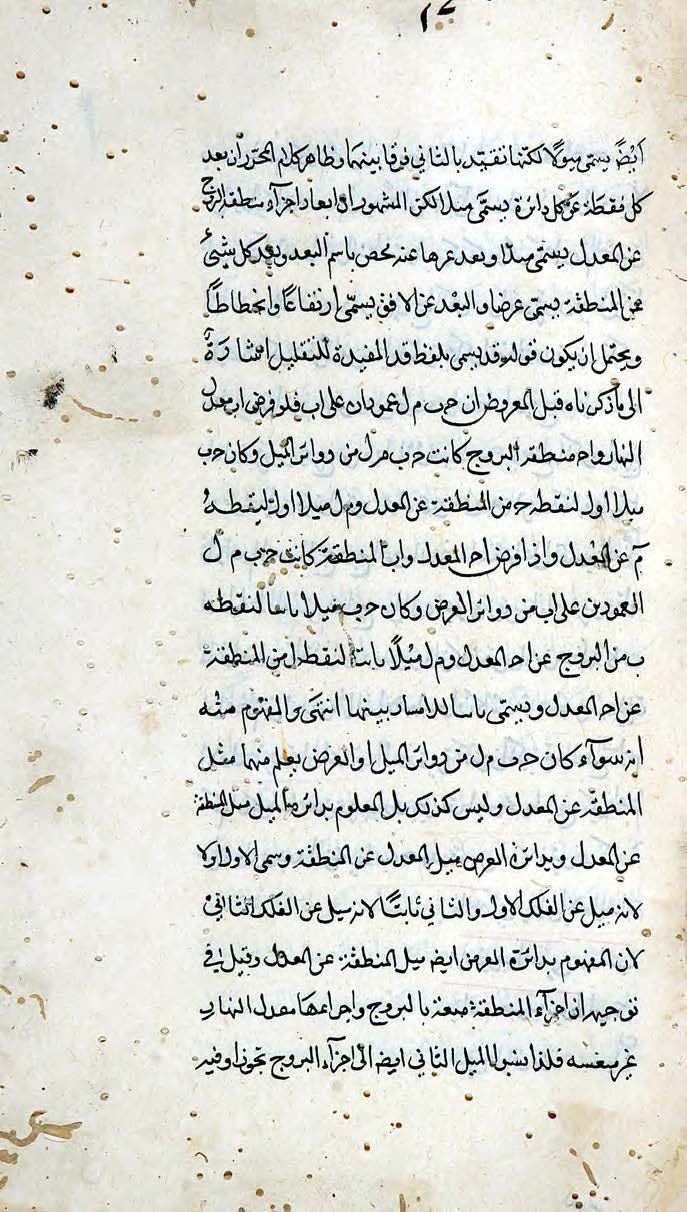 ايضا يسمى ميلا لكنها تقيد بالثاني فرقا بينهما وظاهر كلام المحرر ان بعد
كل نقطة عن كل دائرة يسمى ميلا لكن المشهور ان ابعاد اجزاء منطقة البروج
عن المعدل يسمى ميلا وبعد غرها عنه مخص باسم البعد وبعد كل شيئ
عن المنطقة يسمى عرضا والبعد عن الافق يسمى ارتفاعا وانحطاطا
ويحتمل ان يكون قوله وقد يسمى بلفظ قد المفيدة للتقليل اشارة
الى ما ذكرناه قبل المعروض ان حب م ل عمودان على اب فلو فرض اب معدل
النهار واح منطقة البروج كانت حب م ل من دوائر الميل وكان حب
ميلا اول لنقطة ح من المنطقة عن المعدل وم ل ميلا اولا لنقطة
م عن المعدل واذا فرض اح المعدل واب المنطقة كانت حب م ل
العمودين على اب من دوائر العرض وكان حب ميلا ثانيا لنقطة
ب من البروج عن اح المعدل وم ل ميلا ثانيا لنقطة ل من المنطقة
عن اح المعدل ويسمى بينهما انتهى والمفهوم منه
انه سواء كان حب م ل من دوائر الميل او العرض يعلم منهما ميل
المنطقة عن المعدل وليس كذلك بل المعلوم بدائرة الميل ميل المنطقة
عن المعدل وبدائرة العرض ميل المعدل عن المنطقة وسمى الاول اولا
لانه ميل عن الفلك الاول والثاني ثانيا لانه ميل عن الفلك الثاني
لان المفهوم بدائرة العرض ايضا ميل المنطقة عن المعدل وقيل في
توجيهه ان اجزاء المنطقة بالبروج واجزاء معدل النهار
غير فلذا نسبوا الميل الثاني ايضا الى اجزاء البروج تجوزا وفيه